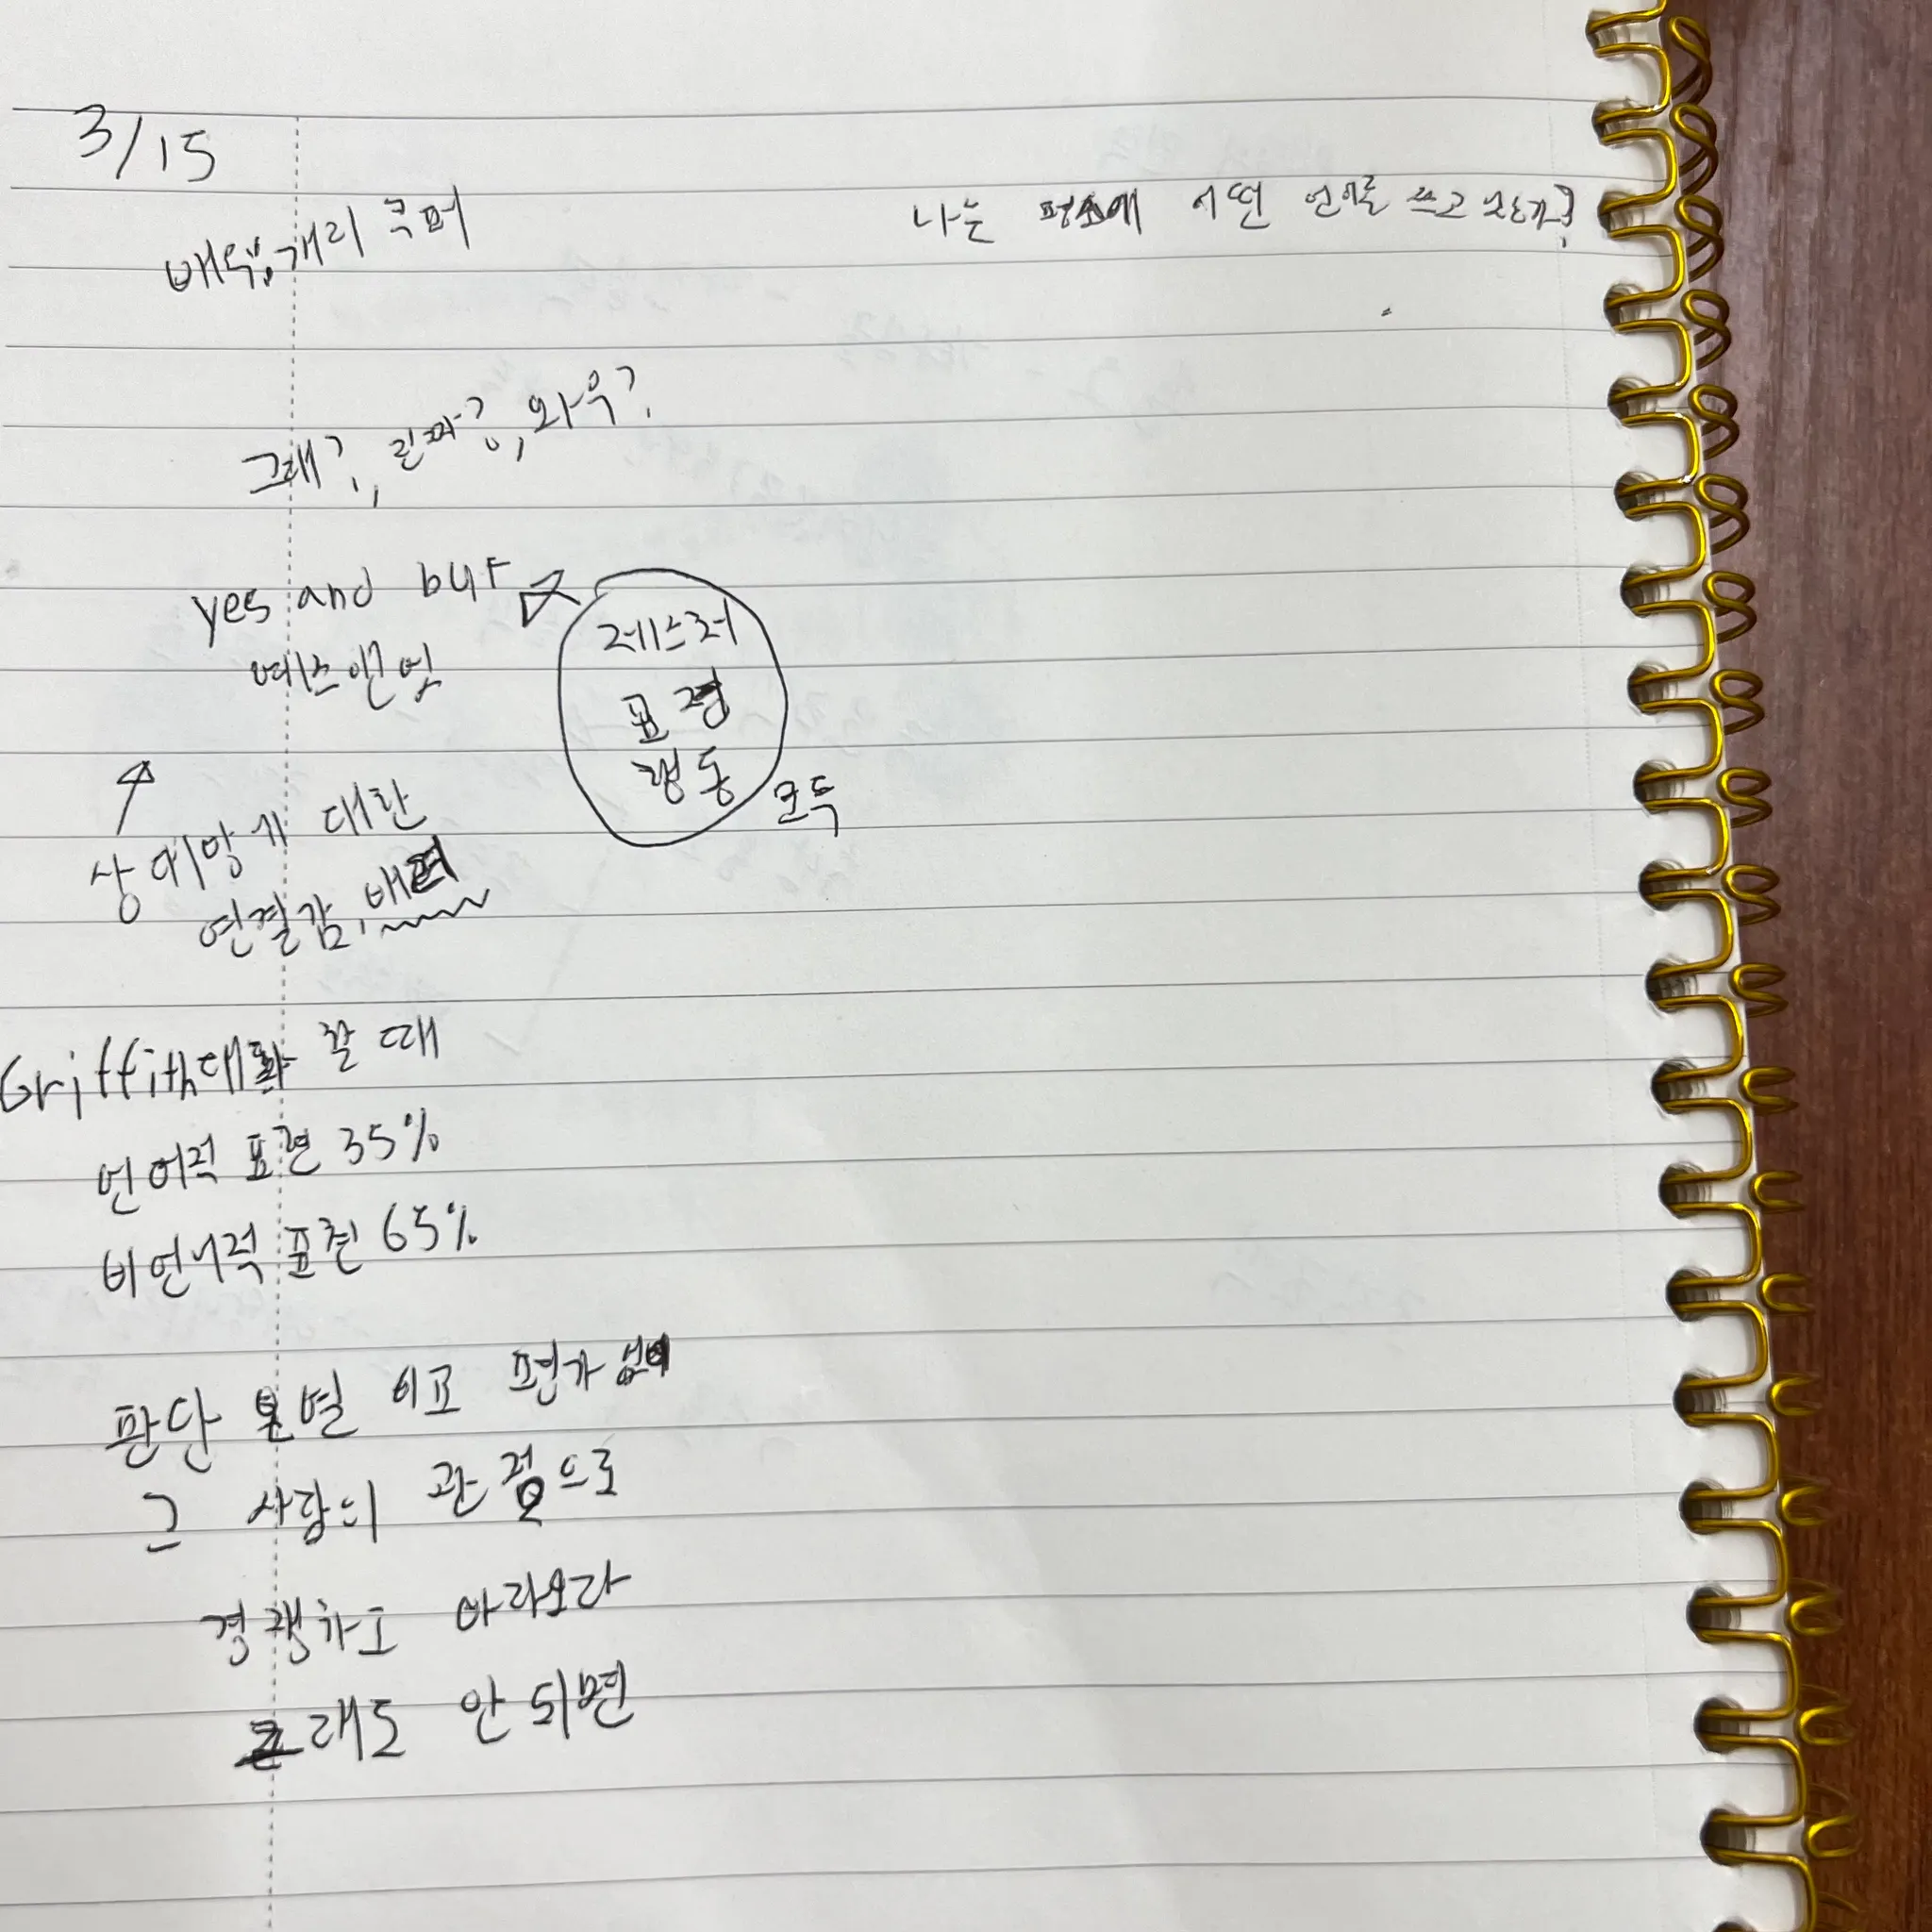 3/15
배우, 개리 쿠퍼
나는 평소에 어떤 언어를 쓰고 있는가?
그래?, 린짜?, 와우?
yes and but
예스앤벗
제스처
표정
행동
모두
상대방에 대한
연결감, 배려
Griffith 대화 할 때
언어적 표현 35%
비언어적 표현 65%
판단 분별 비교 평가 없이
그 사람의 관점으로
경행하고 바라보라
그래도 안 되면